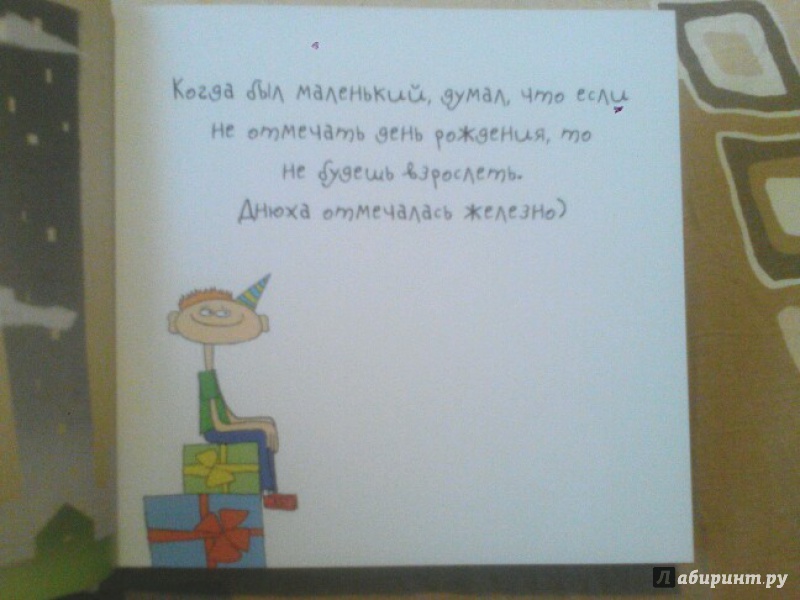 Когда был маленький, думал, что если
не отмечать день рождения, то
не будешь взрослеть.
Днюха отмечалась железно)
Лабиринт.ру